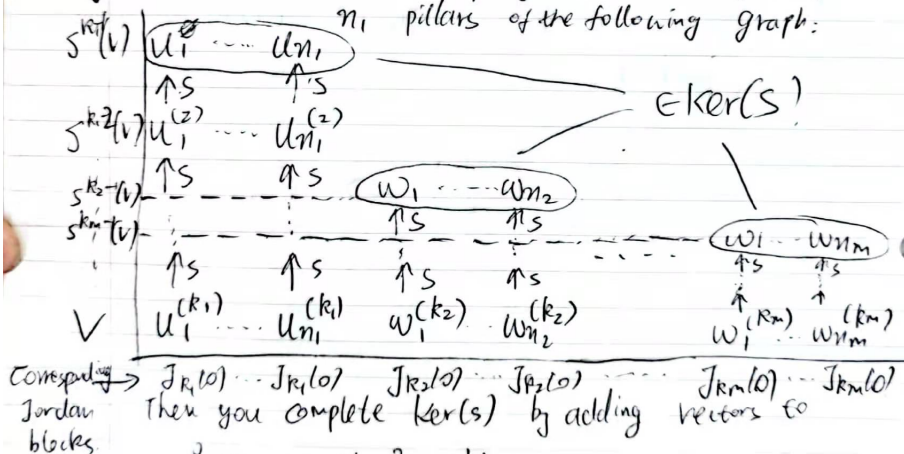 n₁ pillars of the following graph:
S^{k₁-1}(V) u₁ ..... u_{n₁}
↑S ↑S ∈ker(S)
S^{k₁-2}(V) u₁^{(2)} ..... u_{n₁}^{(2)}
↑S ↑S
S^{k₂-1}(V) w₁ ..... w_{n₂}
↑S ↑S
S^{k_m-1}(V) w₁ ... w_{n_m}
↑S ↑S ↑S ↑S ↑S ↑S
V u₁^{(k₁)} ..... u_{n₁}^{(k₁)} w₁^{(k₂)} .. w_{n₂}^{(k₂)} w₁^{(k_m)} ... w_{n_m}^{(k_m)}
Corresponding → J_{k₁}(0) ... J_{k₁}(0) J_{k₂}(0) ... J_{k₂}(0) ..... J_{k_m}(0) ... J_{k_m}(0)
Jordan Then you complete ker(s) by adding vectors to
blocks.